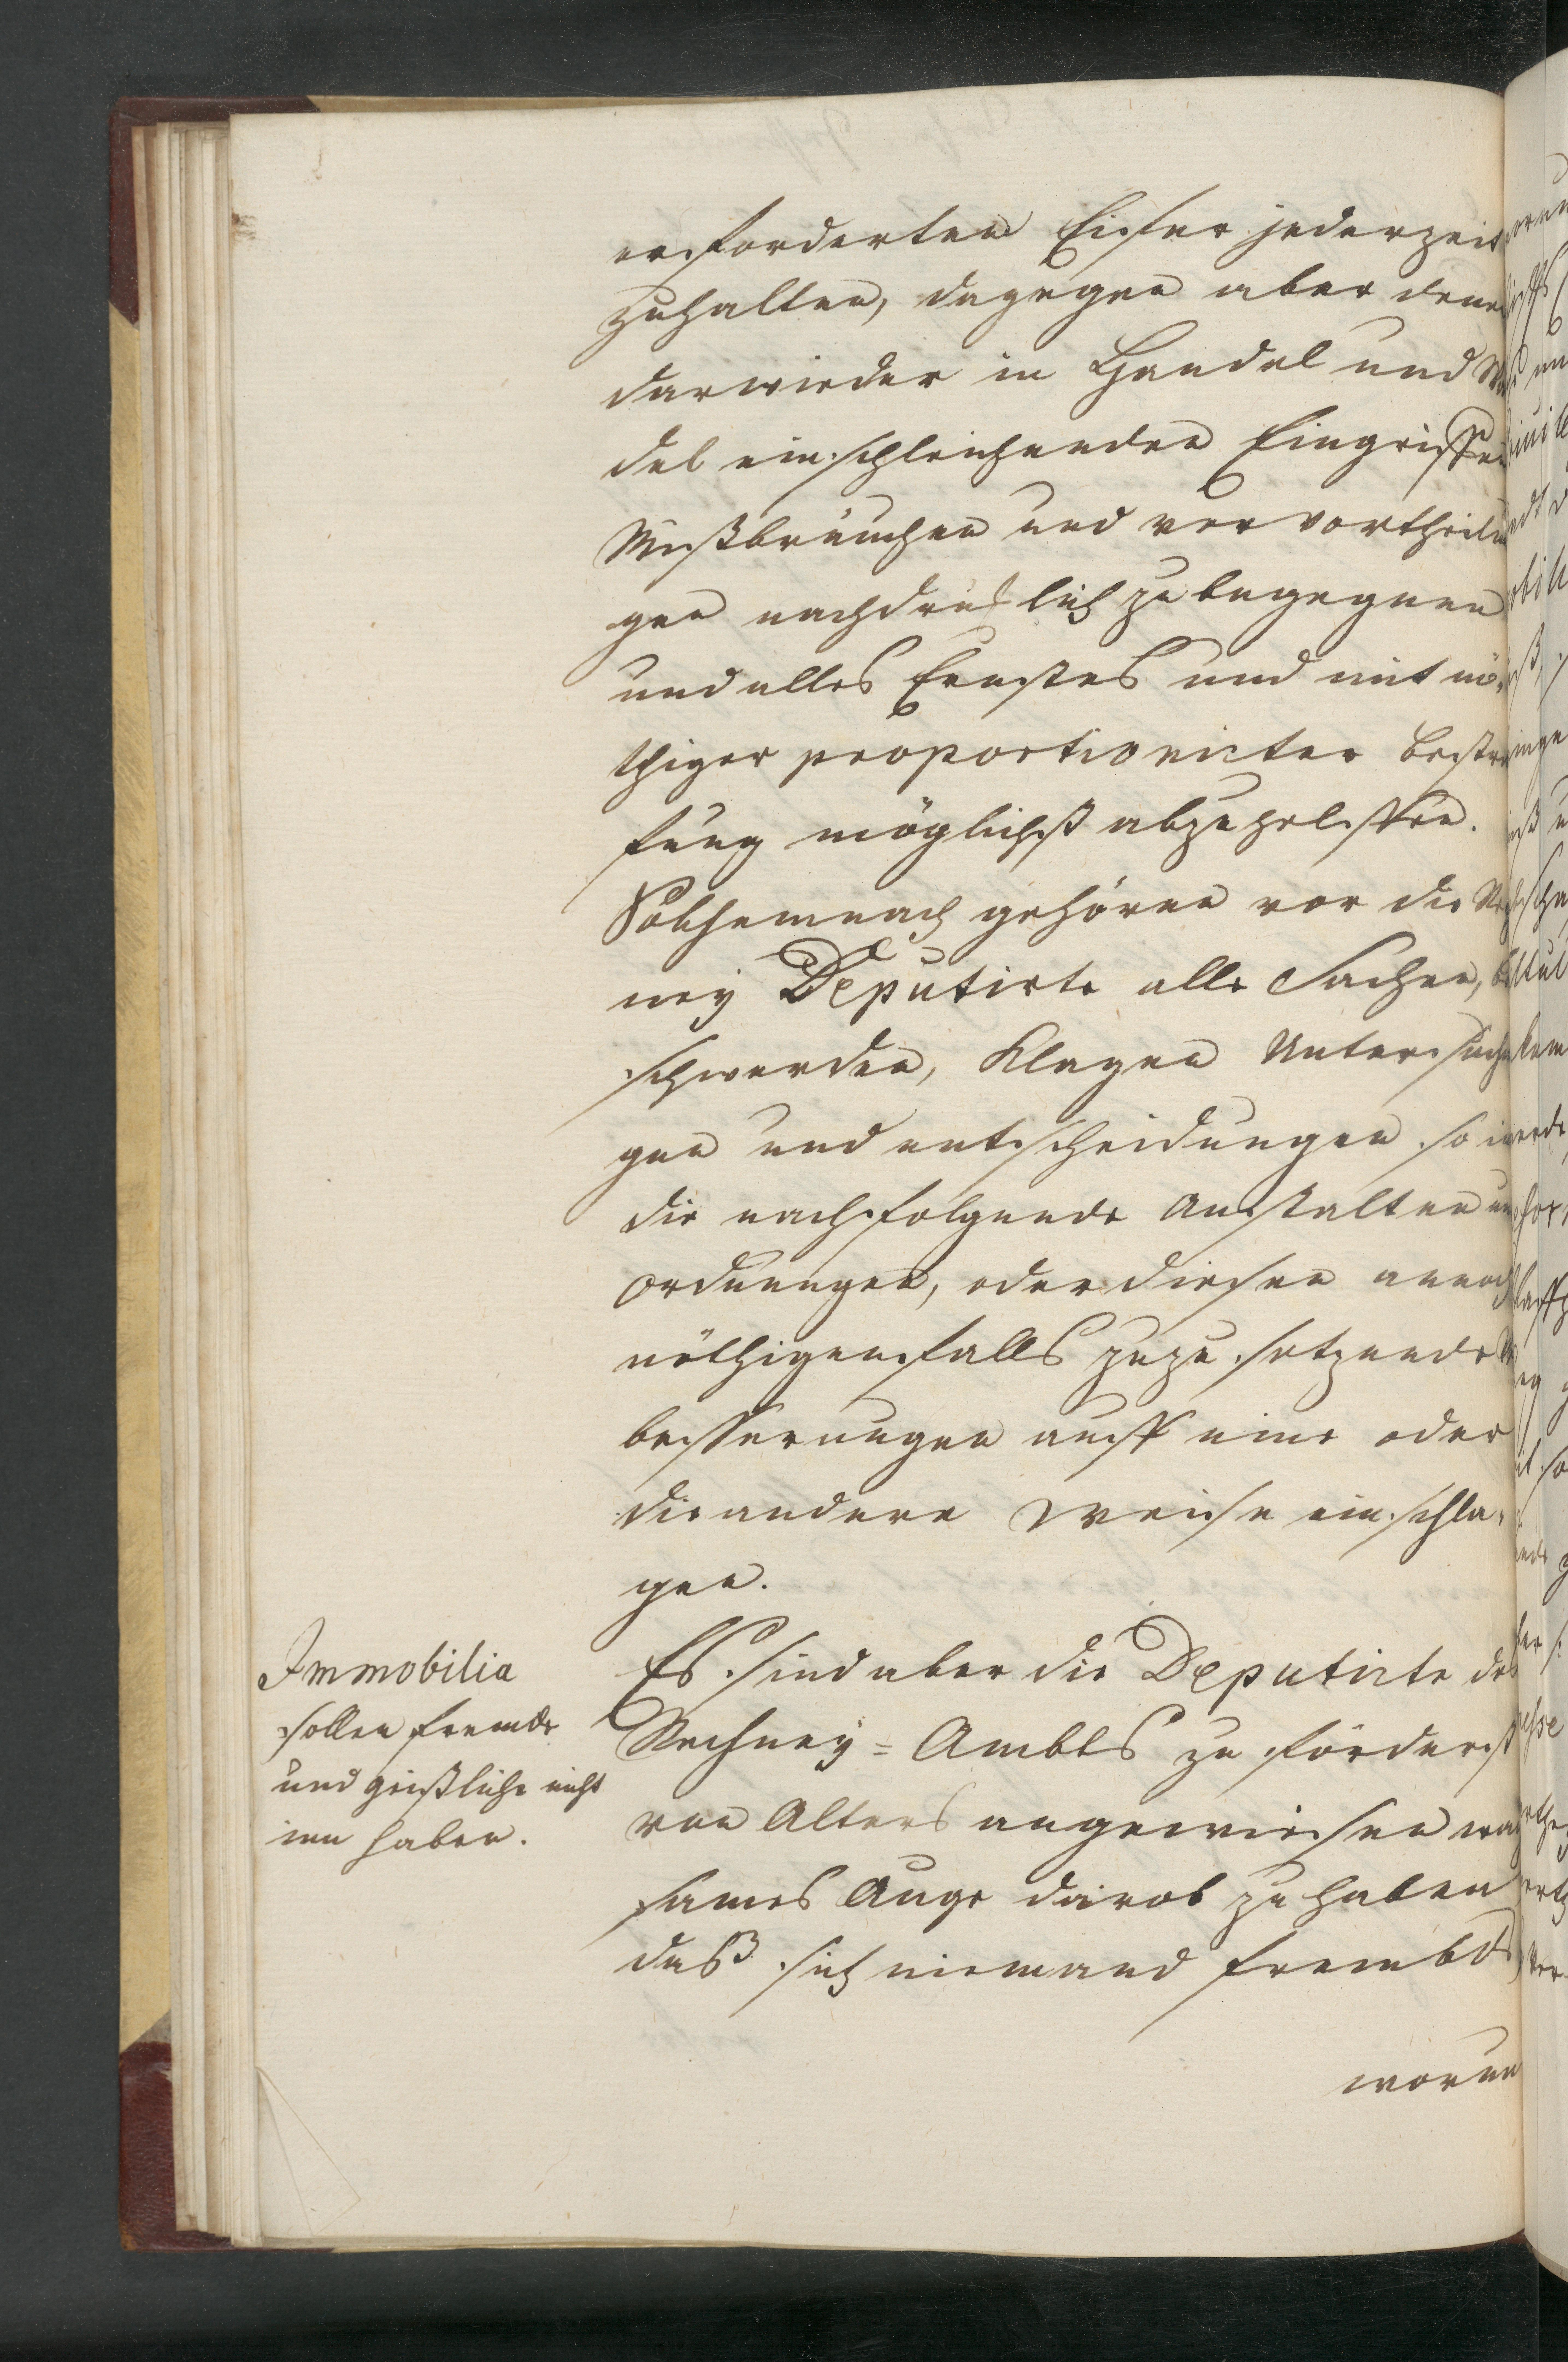 erforderten Eifer jederzeit
zuhalten, dagegen aber denen
darwieder in Handel und
del einschleichenden Eingriffen
Mißbräuchen und vervortheilun
gen nachdrucklich zu begegnen
und alles Ernstes und mit nö-
thiger proportionirter bestra
fung möglichst abzuhelffen.
Solchemnach gehören vor die Rech
ney Deputirte alle Sachen, be
schwerden, Klagen Untersuchun
gen und entscheidungen so in
die nachfolgende Anstalten und
Ordnungen, oder diesen annoch
nöthigenfalls zuzusetzende Ver
besserungen auff eine oder
die andere Weise einschla-
gen.
Immobilia
sollen fremde
und geistliche nicht
inn haben.
Es sind aber die Deputirte des
Rechney=Ambts zu förderst
von Alters angewiesen wach
sames Auge darob zu haben
daß sich niemand frembds
worun